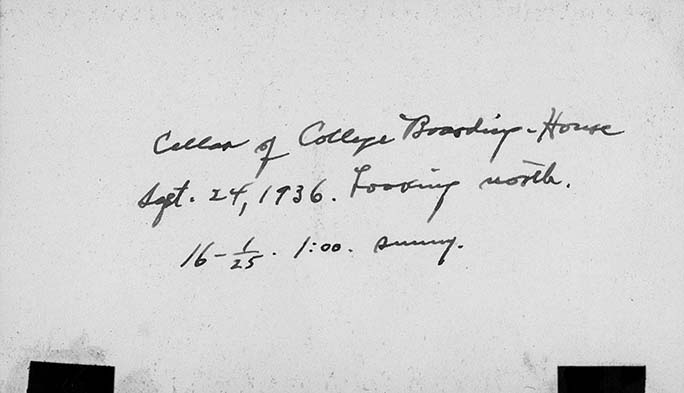 Cellar of College Boarding-House
Sept. 24, 1936. Looking north.
16 - 1/25 . 1:00. sunny.